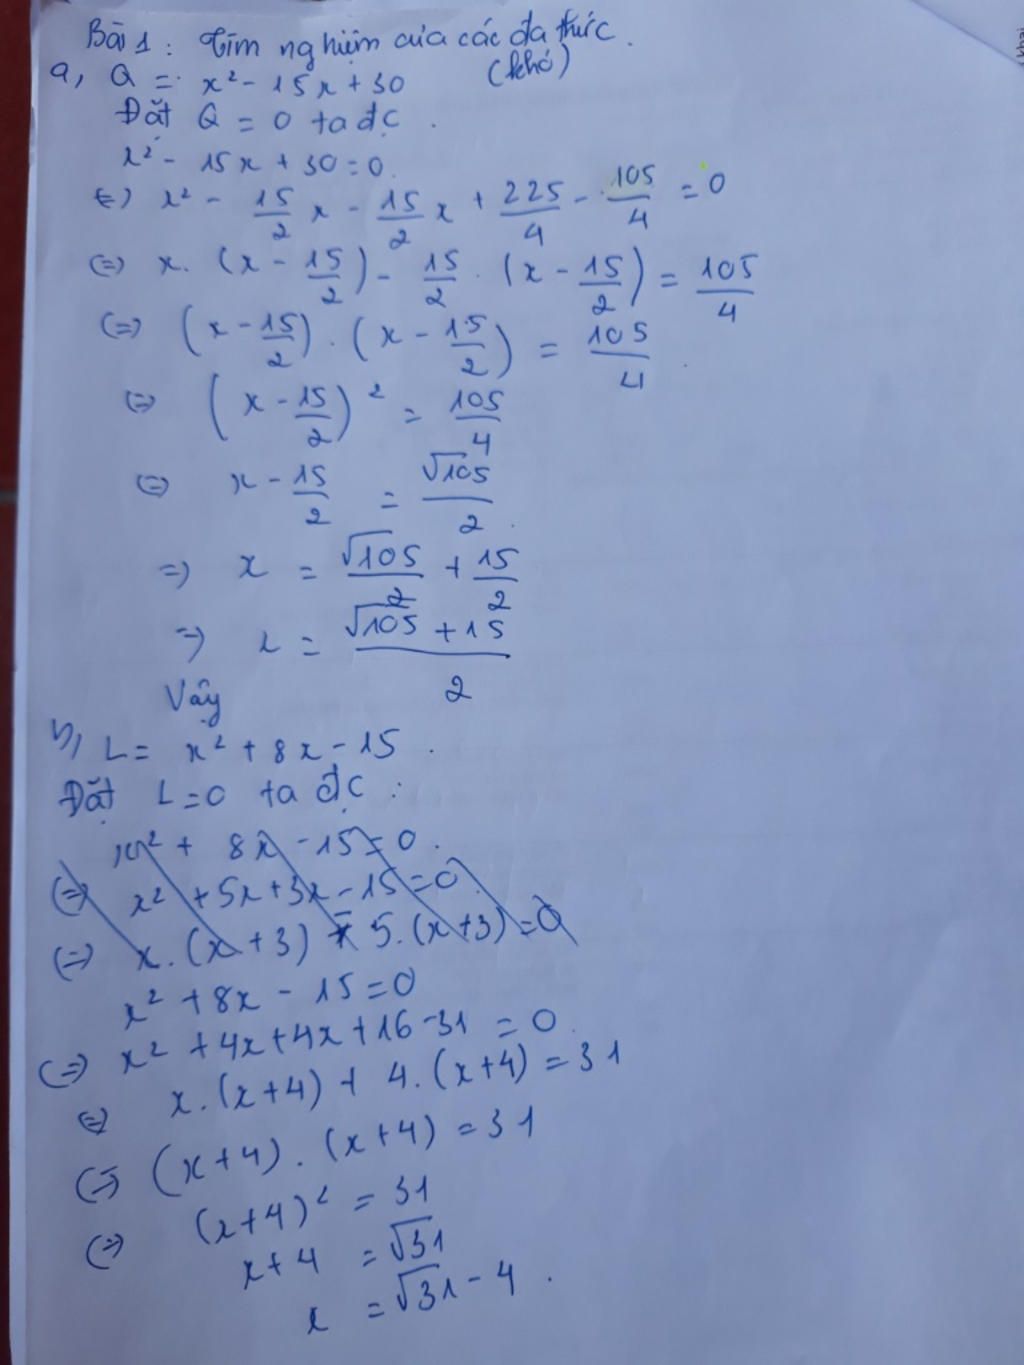 Bài 1: Tìm nghiệm của các đa thức.
(khó)
a, Q = x² - 15x + 30
Đặt Q = 0 ta đc
x² - 15x + 30 = 0.
(=) x² - 15/2 x - 15/2 x + 225/4 - 105/4 = 0
(=) x. (x - 15/2) - 15/2 . (x - 15/2) = 105/4
(=) (x - 15/2) . (x - 15/2) = 105/4
(=) (x - 15/2)² = 105/4
(=) x - 15/2 = √105/2
=) x = √105/2 + 15/2
=) x = (√105 + 15)/2
Vậy
b, L = x² + 8x - 15.
Đặt L = 0 ta đc:
x² + 8x - 15 = 0.
(=) x² + 5x + 3x - 15 = 0
(=) x. (x + 3) - 5. (x + 3) = 0
x² + 8x - 15 = 0
(=) x² + 4x + 4x + 16 - 31 = 0
(=) x. (x + 4) + 4. (x + 4) = 31
(=) (x + 4) . (x + 4) = 31
(=) (x + 4)² = 31
x + 4 = √31
x = √31 - 4.